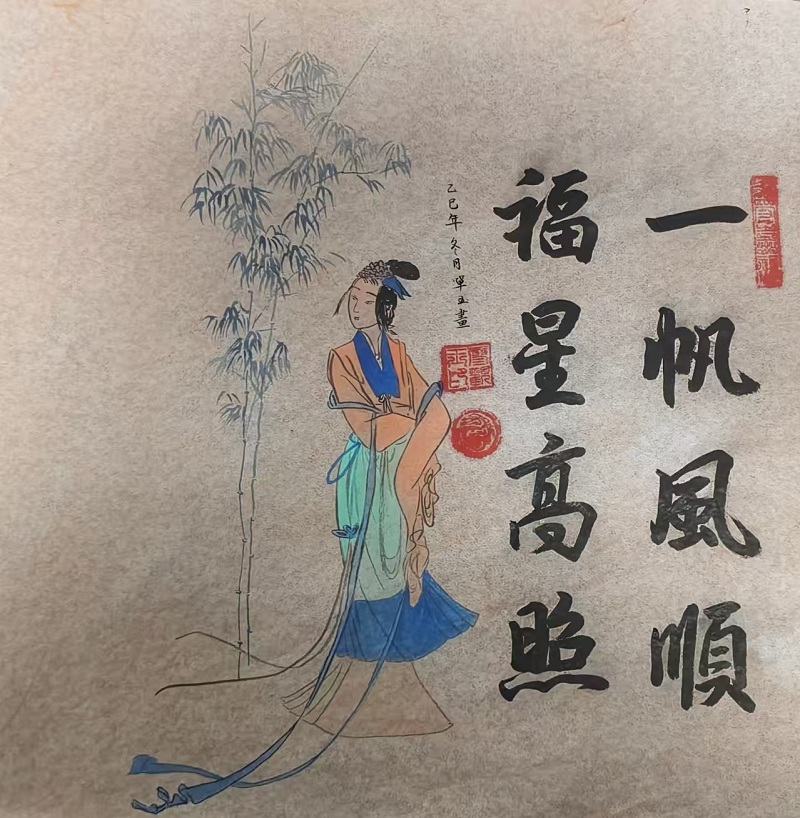 一帆風順
福星高照
乙巳年冬月單玉畫